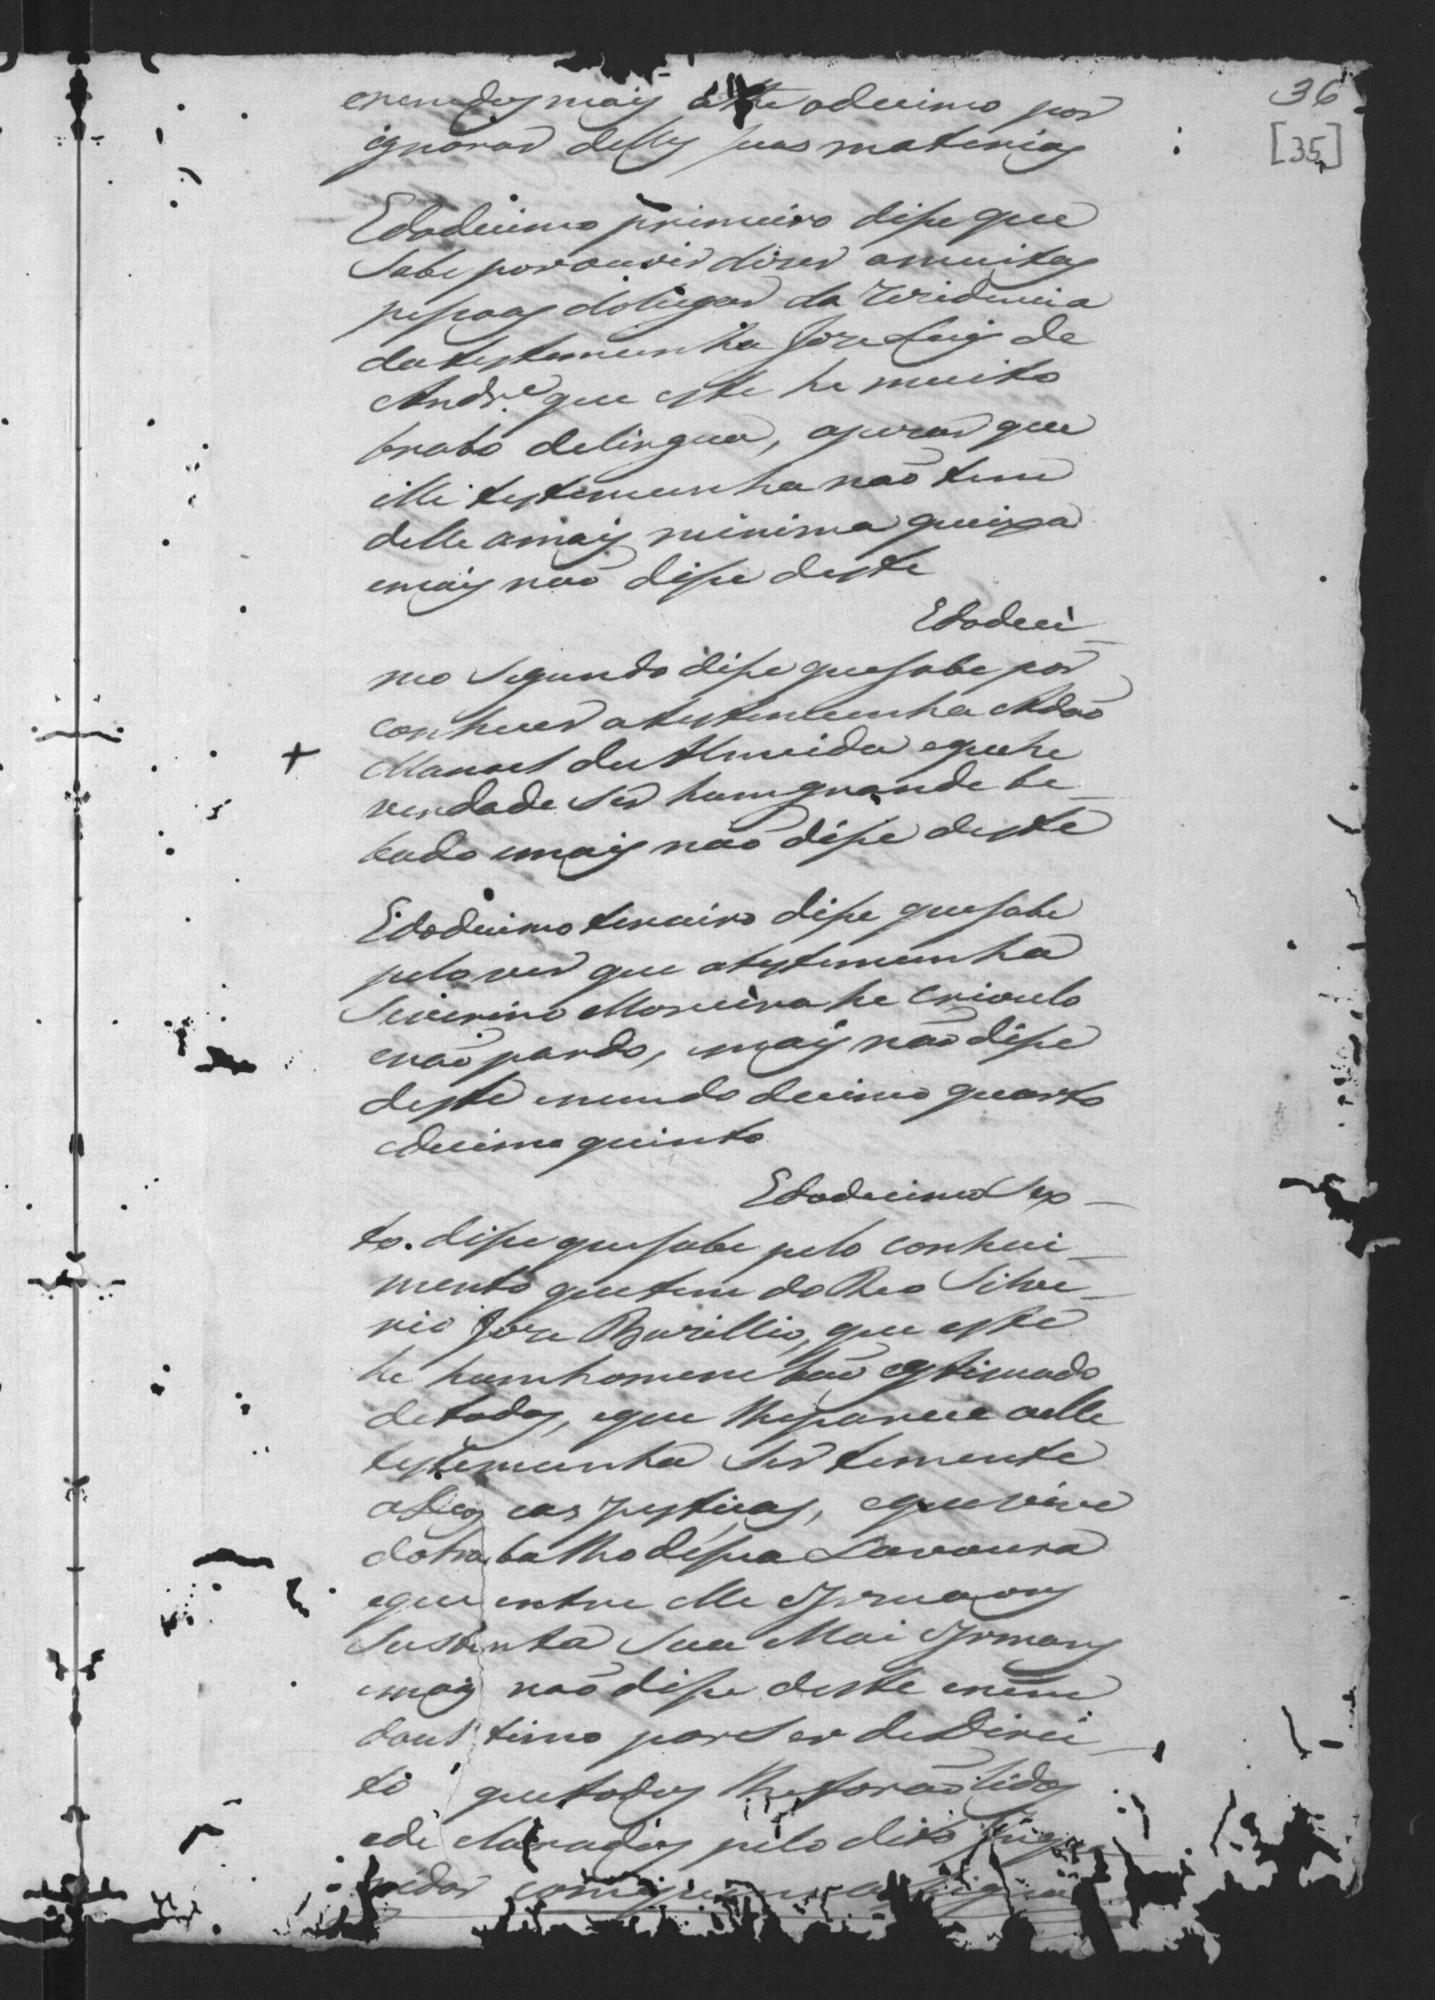 36
[35]
enem dos mais athe odecimo por
ignorar delles suas materias
Edodecimo primeiro dise que
sabe por ouvir dizer amuitas
pesoas dolugar da rezidencia
datestemunha Joze Luis de
Andr.e que este he muito
brabo delingua, apezar que
elle testemunha não tem
delle amais minima queixa
emais não dise deste
Edodeci-
mo segundo dise quesabe por
conhecer atestemunha Adão
Manoel de Almeida eque he
verdade ser hum grande be-
bado emais não dise deste
Edodecimo terceiro dise quesabe
pelo ver que atestemunha
Severino Moreira he crioulo
enão pardo, emais não dise
deste enem do decimo quarto
edecimo quinto
Edodecimo sex-
to. dise quesabe pelo conheci-
mento que tem do Reo Silve-
rio Joze Burillio, que este
he hum homem bão estimado
detodos, eque lheparece aelle
testemunha ser temente
aDeos eas justicas, eque vive
dotrabalho desua Lavoura
eque entre elle eIrmaons
sustenta sua Mai eIrmans
emais não dise deste enem
doultimo por ser de Direi-
to que todos lheforão lidos
ede clarados pelo dito Inqui-
ridor